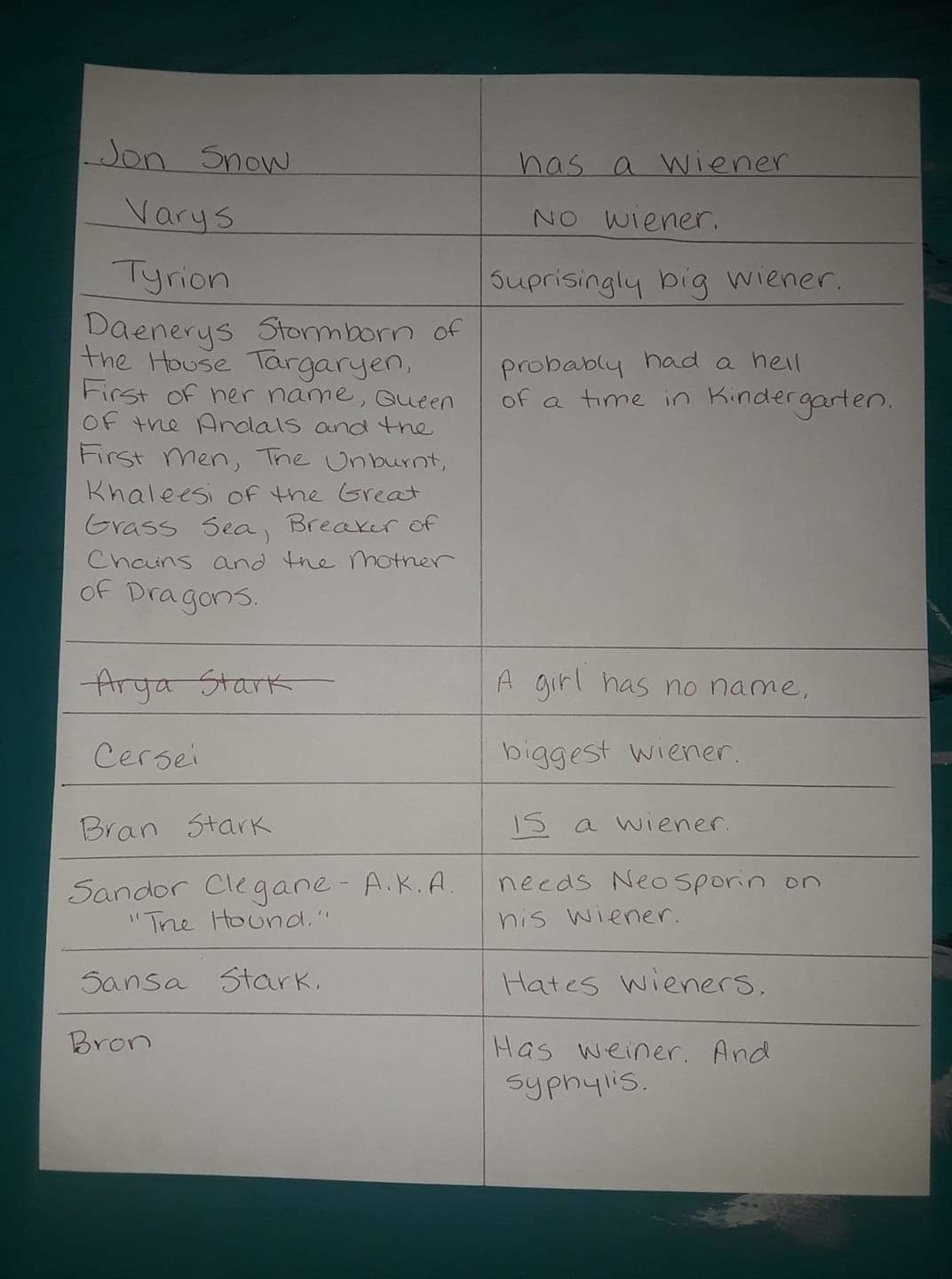 Jon Snow
has a wiener
Varys
NO wiener.
Tyrion
suprisingly big wiener.
Daenerys Stormborn of
the House Targaryen,
First of her name, Queen
of the Andals and the
First Men, The Unburnt,
Khaleesi of the Great
Grass Sea, Breaker of
Chains and the Mother
of Dragons.
probably had a hell
of a time in Kindergarten.
Arya Stark
A girl has no name,
Cersei
biggest wiener.
Bran Stark
IS a wiener.
Sandor Clegane - A.K.A.
"The Hound."
needs Neosporin on
his wiener.
Sansa Stark.
Hates wieners.
Bron
Has weiner. And
syphylis.